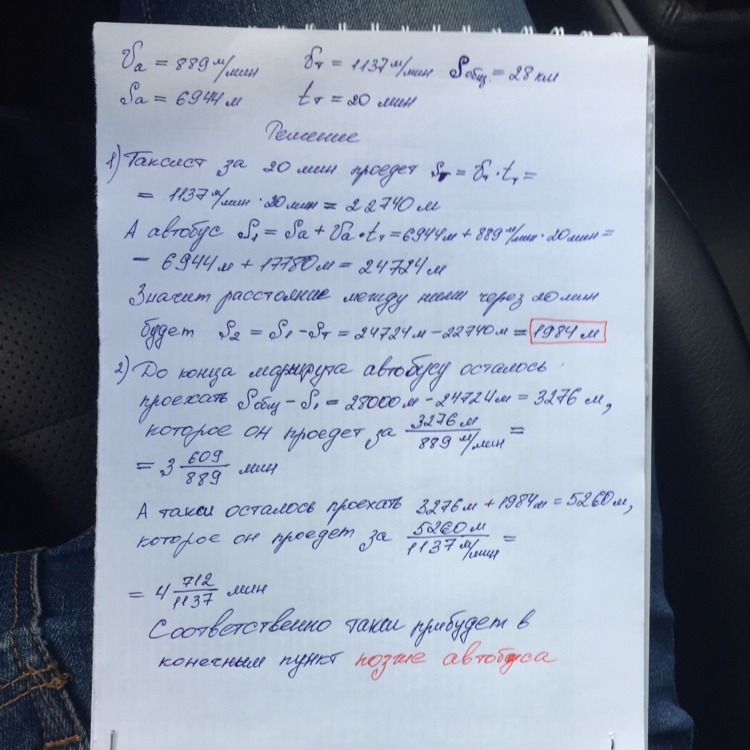 Vа = 889 м/мин Vт = 1137 м/мин Sобщ = 28 км
Sа = 6944 м tт = 20 мин
Решение
1) Таксист за 20 мин проедет Sт = Vт · tт =
= 1137 м/мин · 20 мин = 22740 м
А автобус S1 = Sа + Vа · tт = 6944 м + 889 м/мин · 20 мин =
= 6944 м + 17780 м = 24724 м
Значит расстояние между ними через 20 мин
будет S2 = S1 - Sт = 24724 м - 22740 м = 1984 м
2) До конца маршрута автобусу осталось
проехать Sобщ - S1 = 28000 м - 24724 м = 3276 м,
которое он проедет за 3276 м / 889 м/мин =
= 3 609/889 мин
А такси осталось проехать 3276 м + 1984 м = 5260 м,
которое он проедет за 5260 м / 1137 м/мин =
= 4 712/1137 мин
Соответственно такси прибудет в
конечным пункт позже автобуса